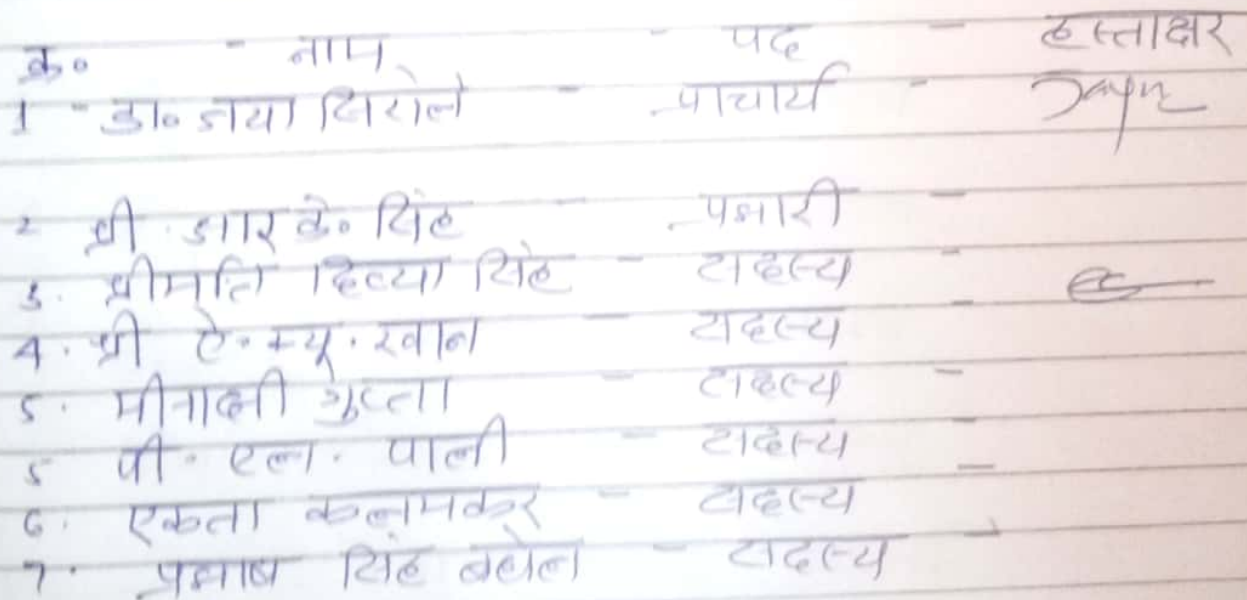 क्र० - नाम - पद - हस्ताक्षर
1 - डा० जया सिरोले - प्राचार्य -
2 श्री आर के० सिंह - प्रभारी -
3. श्रीमति दिव्या सिंह - सदस्य -
4. श्री ऐ. क्यू. खान - सदस्य -
5. मीनाक्षी गुप्ता - सदस्य -
5 पी. एल. पाली - सदस्य -
6. एकता कलमकर - सदस्य -
7. सिंह बघेल - सदस्य -